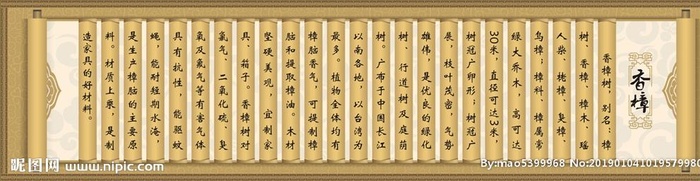 香樟
香樟树，别名：樟
树、香樟、樟木、瑶
人柴、栳樟、臭樟、
乌樟；樟科、樟属常
绿大乔木，高可达
30米，直径可达3米，
树冠广卵形；树冠广
展，枝叶茂密，气势
雄伟，是优良的绿化
树、行道树及庭荫
树。广布于中国长江
以南各地，以台湾为
最多。植物全体均有
樟脑香气，可提制樟
脑和提取樟油。木材
坚硬美观，宜制家
具、箱子。香樟树对
氯气、二氧化硫、臭
氧及氟气等有害气体
具有抗性，能驱蚊
蝇，能耐短期水淹，
是生产樟脑的主要原
料。材质上乘，是制
造家具的好材料。
昵图网 www.nipic.com
By:mao5399968 No:20190104101957998